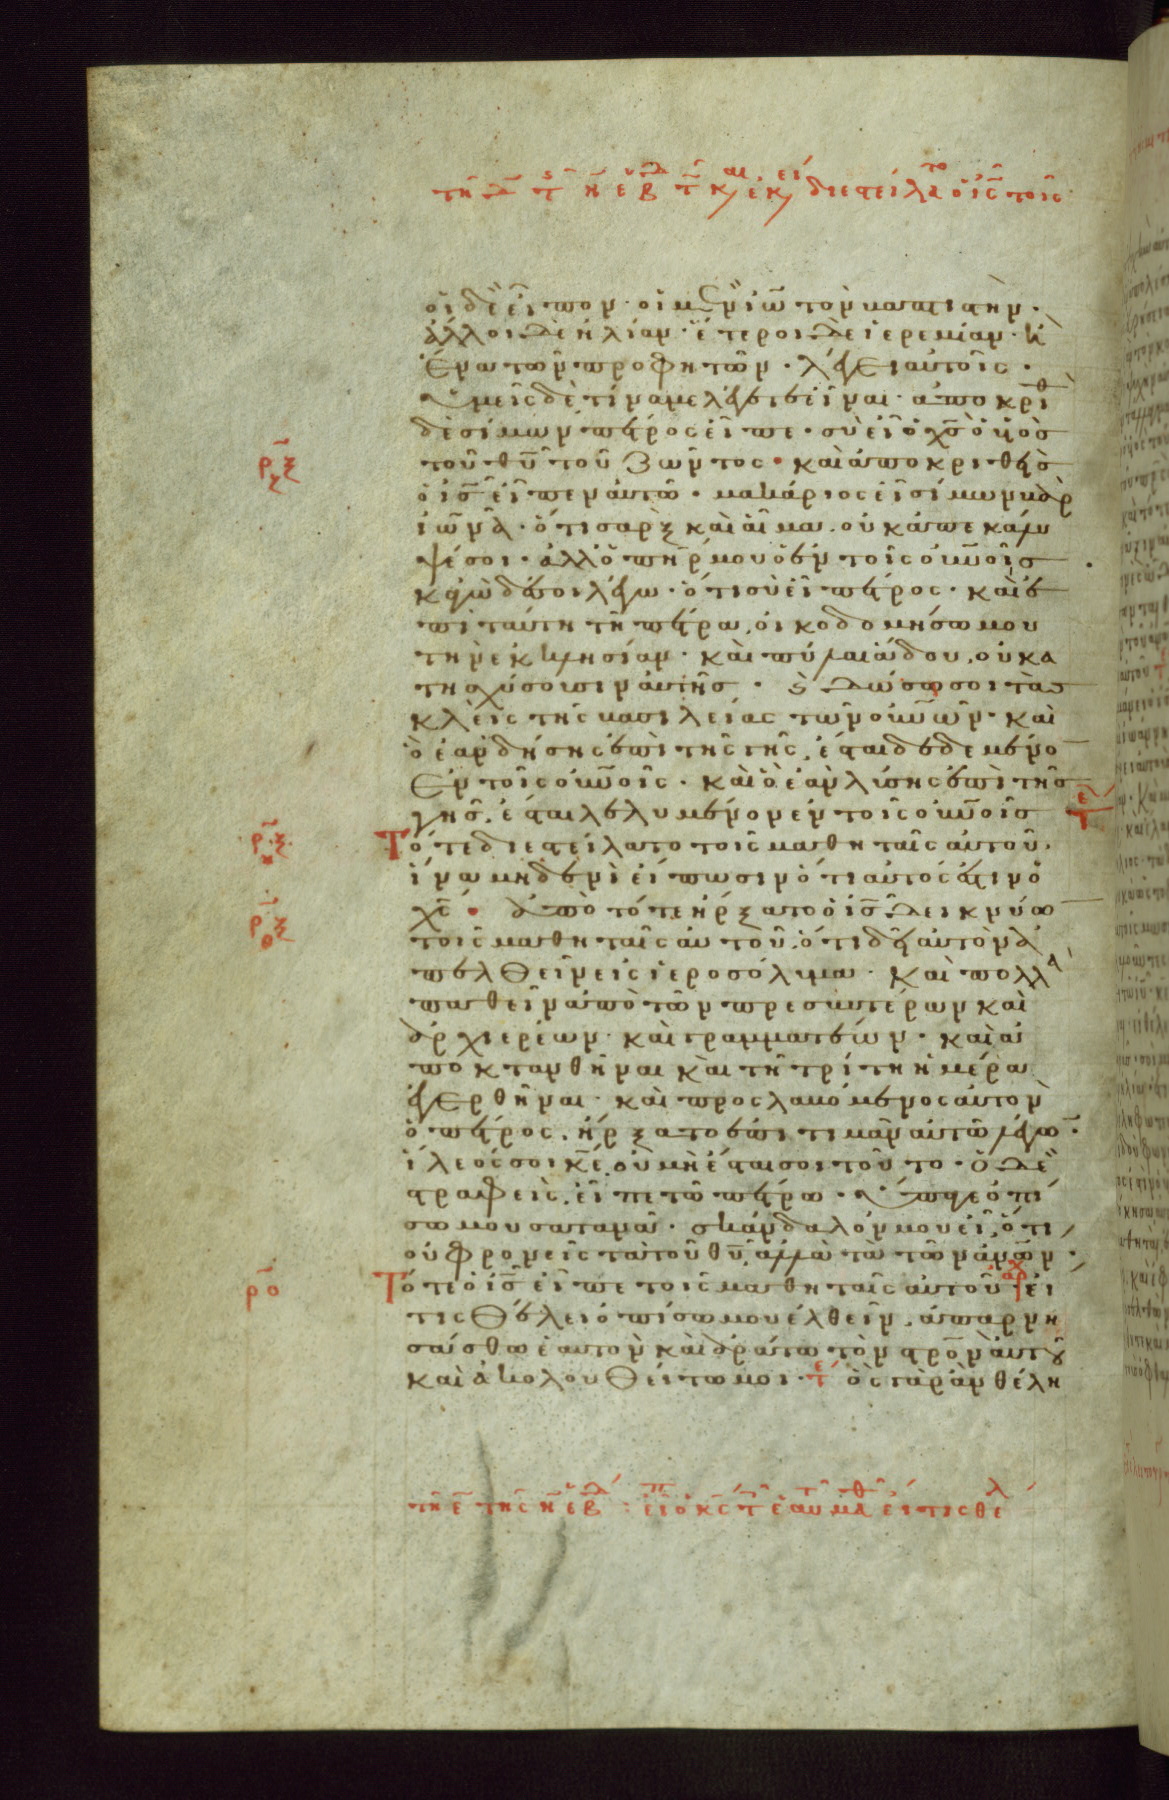 οἱ δὲ εἶπον· οἱ μὲν ἰω̅ τὸν βαπτιστήν·
ἄλλοι δὲ ἠλίαν· ἕτεροι δὲ ἱερεμίαν· ἢ
ἕνα τῶν προφητῶν· λέγει αὐτοῖς·
ὑμεῖς δὲ τίνα με λέγετε εἶναι· ἀποκριθ
δὲ σίμων πέτρος εἶπε· σὺ εἶ ὁ χς̅ ὁ υἱὸς
τοῦ θυ̅ τοῦ ζῶντος· καὶ ἀποκριθεὶς
ὁ ις̅ εἶπεν αὐτῷ· μακάριος εἶ σίμων βὰρ
ἰωνᾶ· ὅτι σὰρξ καὶ αἷμα οὐκ ἀπεκάλυ
ψέ σοι· ἀλλ' ὁ πηρ̅ μου ὁ ἐν τοῖς οὐνοῖς
κἀγὼ δέ σοι λέγω· ὅτι σὺ εἶ πέτρος· καὶ ἐ
πὶ ταύτη τῆ πέτρα, οἰκοδομήσω μου
τὴν ἐκκλησίαν· καὶ πύλαι ἅδου, οὐ κα
τισχύσουσιν αὐτῆς· καὶ δώσω σοι τὰς
κλεῖς τῆς βασιλείας τῶν οὐνῶν· καὶ
ὃ ἐὰν δήσης ἐπὶ τῆς γῆς, ἔσται δεδεμένο
ἐν τοῖς οὐνοῖς· καὶ ὃ ἐὰν λύσης ἐπὶ τῆς
γῆς, ἔσται λελυμένον ἐν τοῖς οὐνοῖς
Τότε διεστείλατο τοῖς μαθηταῖς αὐτοῦ·
ἵνα μηδενὶ εἴπωσιν ὅτι αὐτός ἐστιν ὁ
χς̅· ἀπὸ τότε ἤρξατο ὁ ις̅ δεικνύειν
τοῖς μαθηταῖς αὐτοῦ, ὅτι δεῖ αὐτὸν ἀ
πελθεῖν εἰς ἱεροσόλυμα· καὶ πολλὰ
παθεῖν ἀπὸ τῶν πρεσβυτέρων καὶ
ἀρχιερέων· καὶ γραμματέων· καὶ ἀ
ποκτανθῆναι καὶ τῆ τρίτη ἡμέρα
ἐγερθῆναι· καὶ προσλαβόμενος αὐτὸν
ὁ πέτρος, ἤρξατο ἐπιτιμᾶν αὐτῶ λέγω·
ἵλεός σοι κε̅, οὐ μὴ ἔσται σοι τοῦτο· ὁ δὲ
στραφεὶς, εἶπε τῶ πέτρω· ὕπαγε ὀπί
σω μου σατανᾶ· σκάνδαλόν μου εἶ, ὅτι
οὐ φρονεῖς τὰ τοῦ θυ̅ ἀλλὰ τὰ τῶν ἀνων·
Τότε ὁ ις̅ εἶπε τοῖς μαθηταῖς αὐτοῦ· εἴ
τις θέλει ὀπίσω μου ἐλθεῖν, ἀπαρνη
σάσθω ἑαυτὸν καὶ ἀράτω τὸν στρον αὐτοῦ
καὶ ἀκολουθείτω μοι· ὃς γὰρ ἂν θέλη